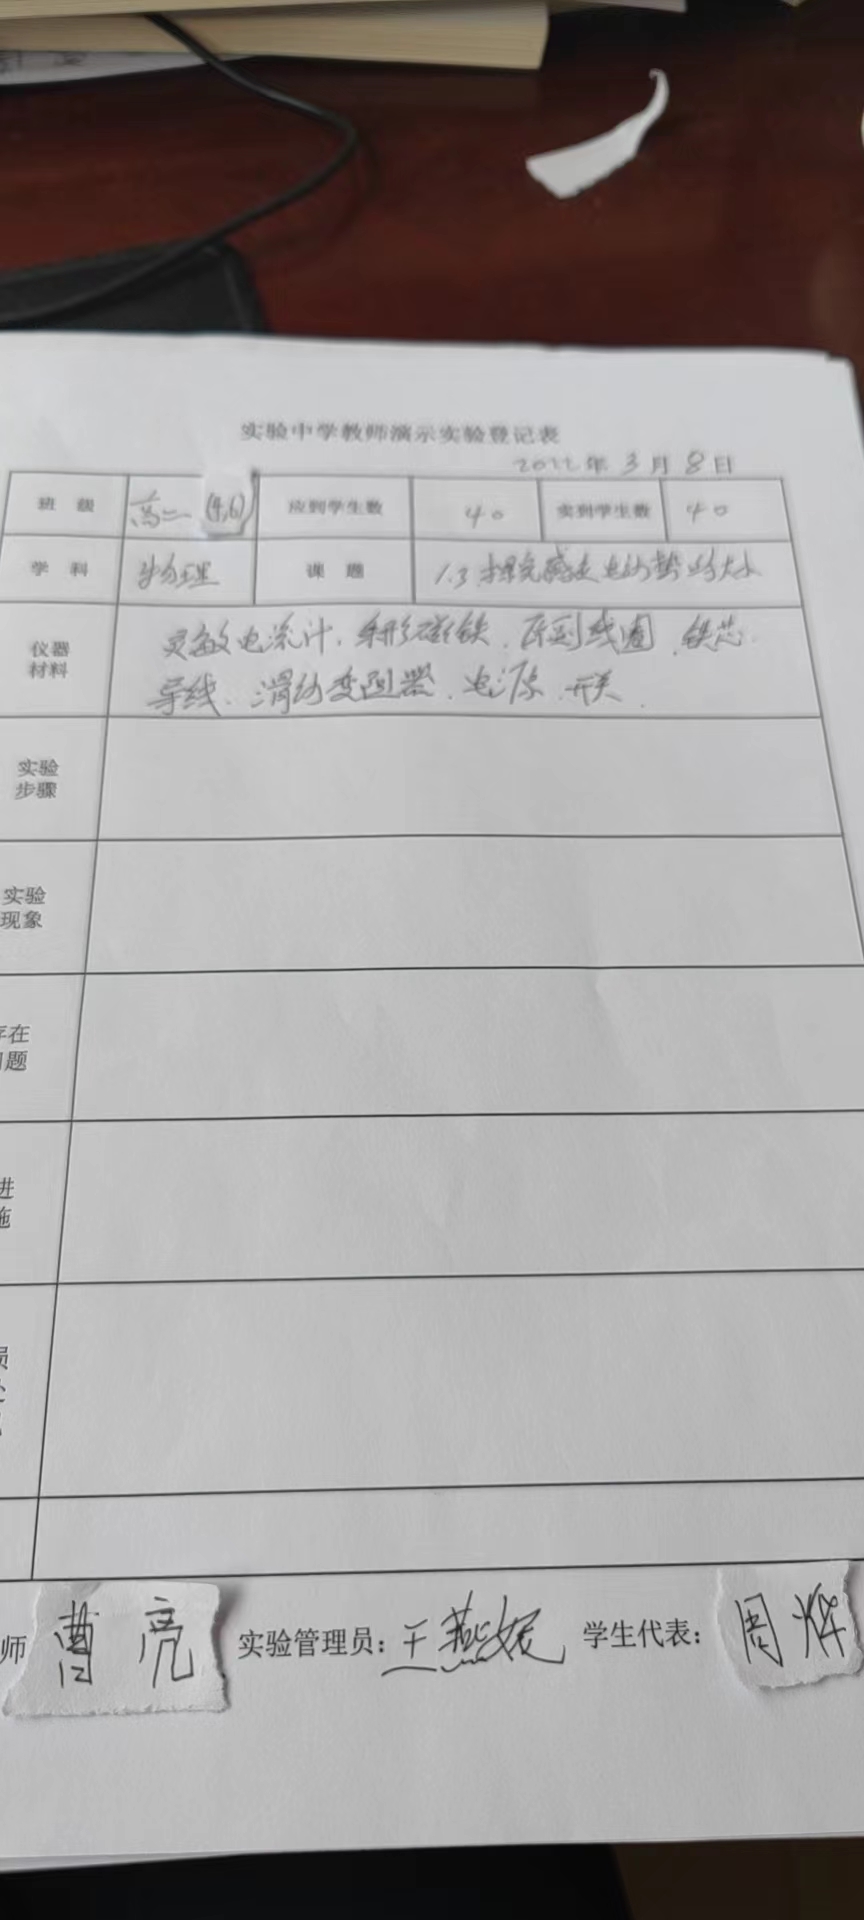 实验中学教师演示实验登记表
2022年3月8日
班 级 高二(4,6) 应到学生数 40 实到学生数 40
学 科 物理 课 题 1.3探究感应电动势的大小
仪器
材料
灵敏电流计、条形磁铁、原副线圈、铁芯、
导线、滑动变阻器、电源、开关、
实验
步骤
实验
现象
存在
问题
进
施
损
师 曹亮 实验管理员:王燕妮 学生代表:周烨